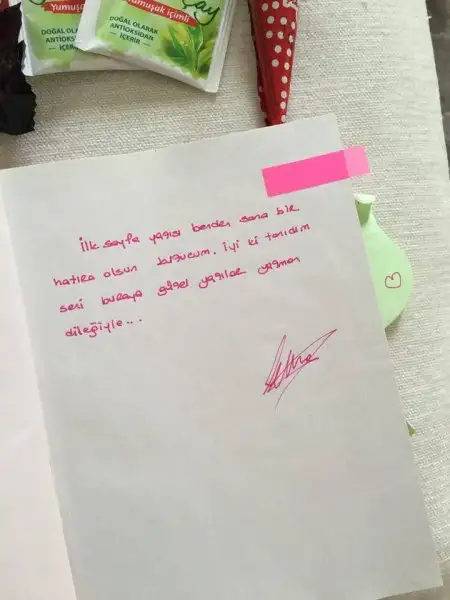 Yumuşa
DOĞAL OLA
ANTİOKSİ
İÇER
Çay
Yumuşak içimli
DOĞAL OLARAK
ANTİOKSİDAN
İÇERİR
İlk sayfa yazısı benden sana bir
hatıra olsun kuzucum. İyi ki tanıdım
seni buraya güzel yazılar yazman
dileğiyle...